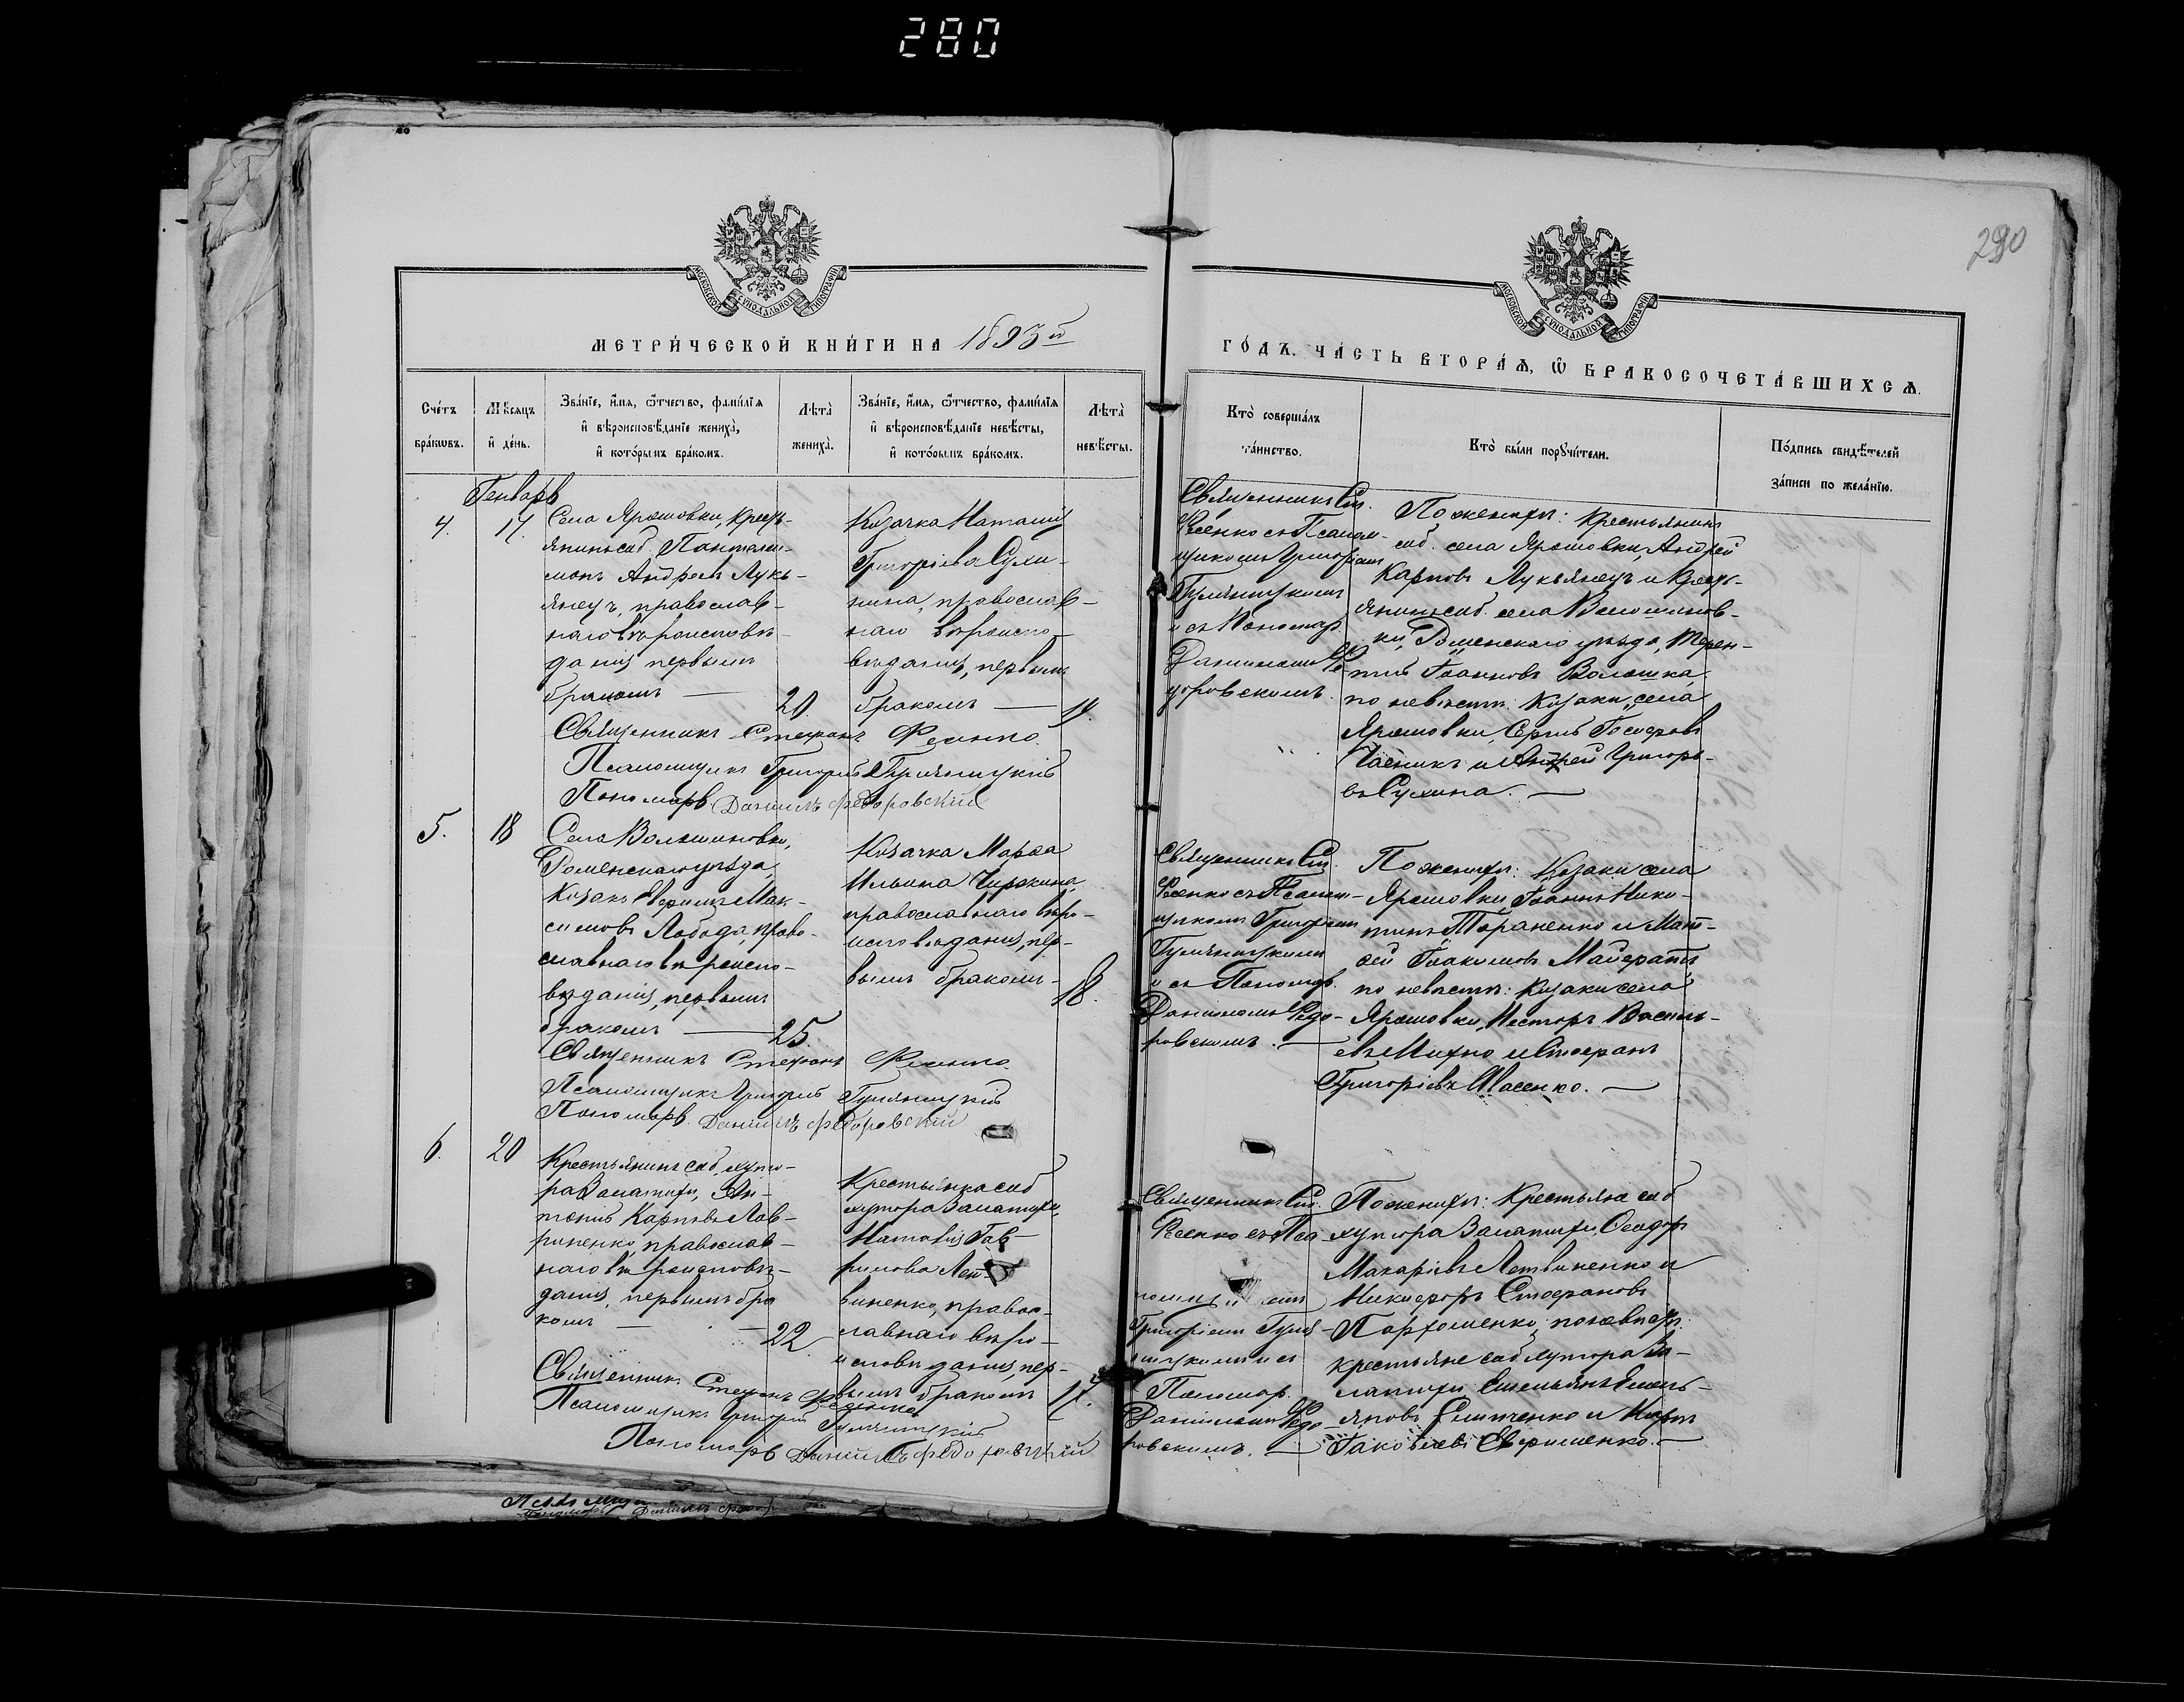 280
290
МОСКОВСКОЙ СѴНОДАЛЬНОЙ ТИПОГРАФІИ
МОСКОВСКОЙ СѴНОДАЛЬНОЙ ТИПОГРАФІИ
МЕТРИ́ЧЕСКОЙ КНИ́ГИ НА 1893 й
ГО́ДЪ, ЧА́СТЬ ВТОРА́Ѧ, Ѽ БРАКОСОЧЕТА́ВШИХСѦ.
Сче́тъ бра́ковъ.
Мѣ́сяцъ и де́нь.
Зва́нїе, и́мѧ, ѻ́тчество, фами́лїѧ и вѣроисповѣ́данїе жениха̀, и кото́рымъ бра́комъ.
Лѣта̀ жениха̀.
Зва́нїе, и́мѧ, ѻ́тчество, фами́лїѧ и вѣроисповѣ́данїе невѣ́сты, и кото́рымъ бра́комъ.
Лѣта̀ невѣ́сты.
Кто̀ соверша́лъ та́инство.
Кто̀ бы́ли порꙋчи́тели.
По́дпись свидѣ́телей за́писи по жела́нїю.
Генварь
4.
17.
Села Ярошовки, кресть-
янинъ соб. Пантелей-
монъ Андреевъ Лукь-
янецъ, православ-
наго вѣроисповѣ-
данія, первымъ
бракомъ —
20.
Козачка Наталия
Григоріева Сухи-
нина, православ-
наго вѣроиспо-
вѣданія, первымъ
бракомъ —
Священникъ Ст.
Ѳесенко съ Псалом-
щикомъ Григоріемъ
и съ Пономар.
Даніиломъ Ѳе-
доровскимъ.
По женихѣ: крестьянинъ
соб. села Ярошовки, Андрей
Карповъ Лукьянецъ и крест-
янинъ соб. села Волошинов-
ки, Роменскаго уѣзда, Терен-
тій Іоанновъ Волошка,
по невѣстѣ: козаки села
Ярошовки, Сергій Іосифовъ
Чайникъ и Андрей Григорь-
евъ Сухина. —
Священникъ Стефанъ Ѳесенко
Псаломщикъ Григорій
Пономарь Даніилъ Федоровскій
5.
18
Села Волошиновки,
Роменскаго уѣзда,
козакъ Евфимъ Мак-
симовъ Лобода, право-
славнаго вѣроиспо-
вѣданія, первымъ
бракомъ —
25.
Козачка Марѳа
Ильина
православнаго вѣро-
исповѣданія, пер-
вымъ бракомъ —
18.
Священникъ Ст.
Ѳесенко съ Псалом-
щикомъ Григоріемъ
и съ Пономар.
Даніиломъ Ѳедо-
ровскимъ. —
По женихѣ: козаки села
Ярошовки, Іоаннъ Ники-
тинъ Тараненко и Мат-
ѳей Іоакимовъ
по невѣстѣ: козаки села
Ярошовки, Несторъ Василь-
евъ Михно и Стефанъ
Григоріевъ —
Священникъ Стефанъ Ѳесенко
Псаломщикъ Григорій
Пономарь Даніилъ Федоровскій
6.
20
Крестьянинъ соб. хуто-
ра Залатихи, Ан-
тоній Карповъ Лав-
риненко, православ-
наго вѣроисповѣ-
данія, первымъ бра-
комъ —
22
Крестьянка соб.
хутора Залатихи,
Наталія Гав-
рилова Лет-
виненко, правос-
лавнаго вѣро-
исповѣданія, пер-
вымъ бракомъ
17.
Священникъ Ст.
Ѳесенко съ Пса-
Григоріемъ
Пономар.
Даніиломъ Ѳедо-
ровскимъ. —
По женихѣ: крестьяне соб.
хутора Залатихи, Ѳеодоръ
Макаріевъ Летвиненко и
Никифоръ Стефановъ
Пархоменко, по невѣстѣ:
крестьяне соб. хутора За-
латихи Емельянъ
и Карпъ
Іаковлевъ Евфименко. —
Священникъ Стефанъ Ѳесенко
Псаломщикъ Григорій
Пономарь Даніилъ Федоровскій